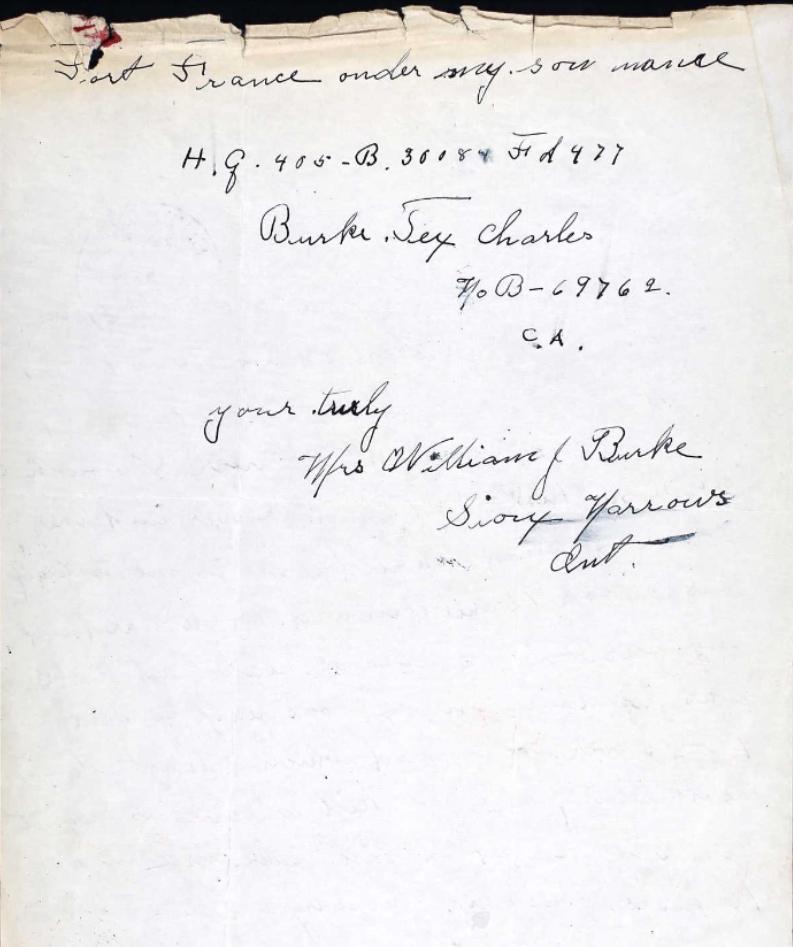 Fort France onder my son nance
H.Q. 405-B. 3008 Fd 477
Burke. Tex Charles
No B-69762.
C.A.
your truly
Mrs William J Burke
Sioux Narrows
Ont.